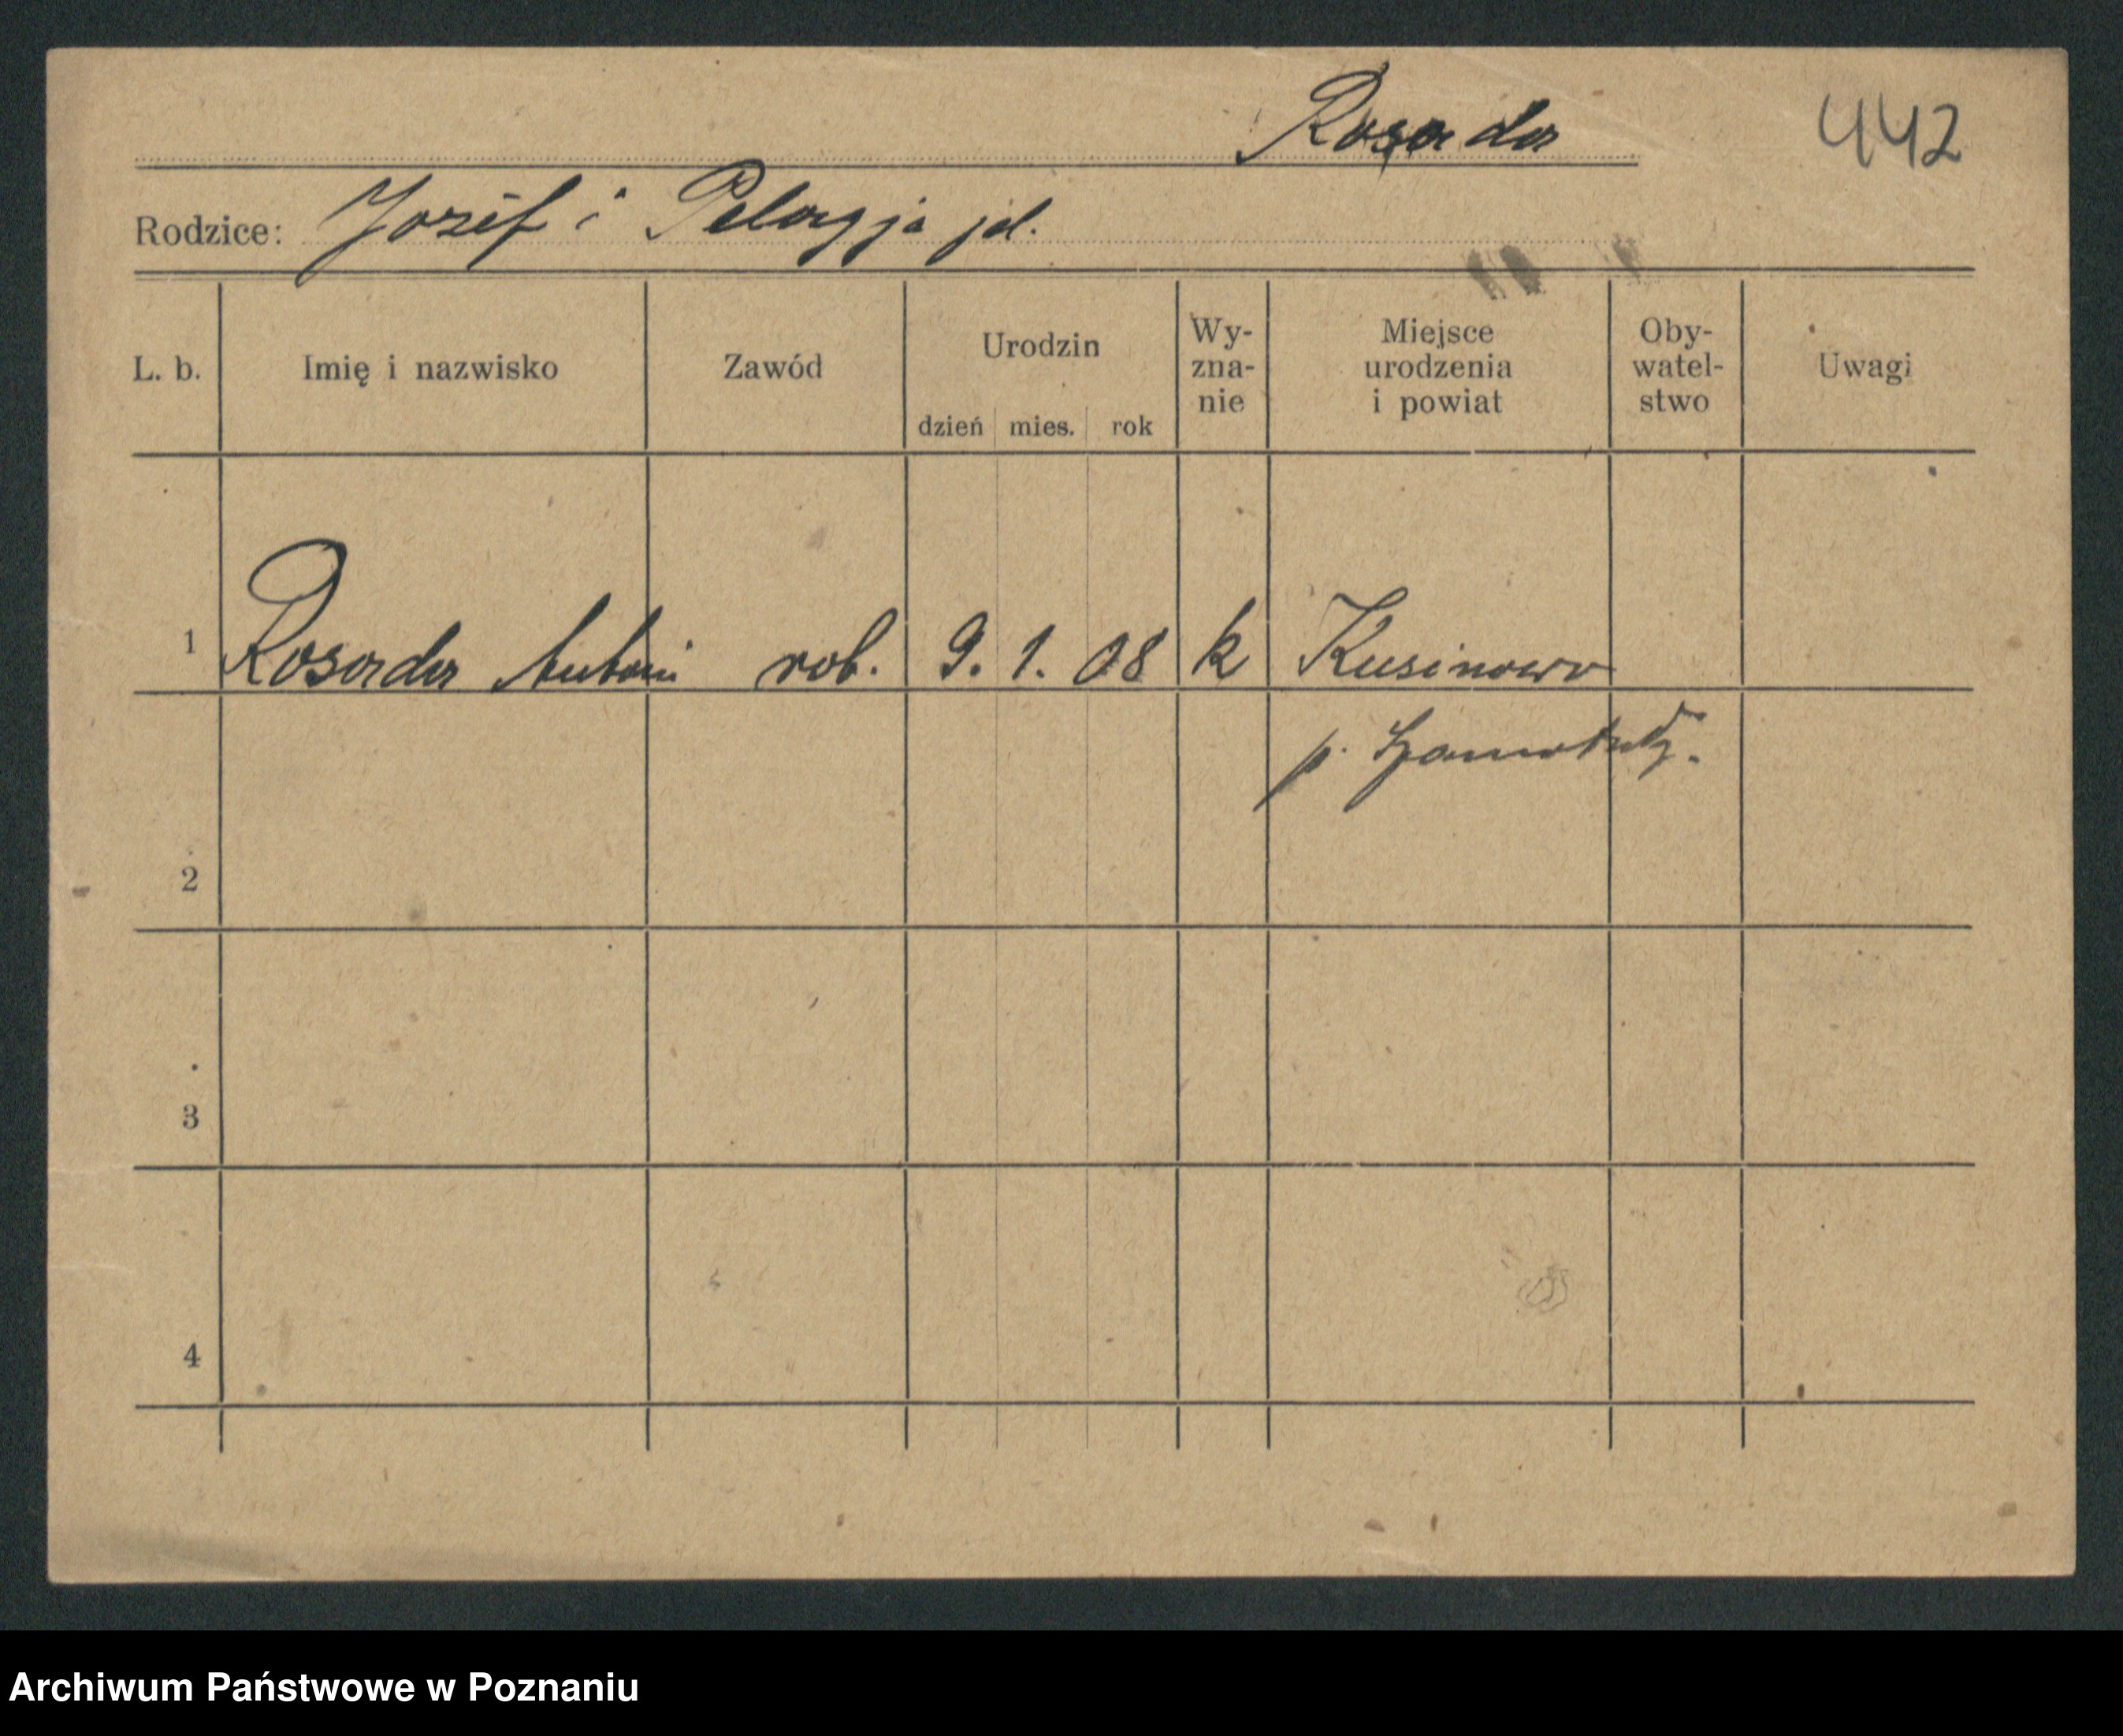 Rosada
442
Rodzice: Jozéf i Pelagja jd.
L. b. Imię i nazwisko Zawód Urodzin dzień mies. rok Wy-zna-nie Miejsce urodzenia i powiat Oby-watel-stwo Uwagi
1 Rosada Antoni rob. 9. 1. 08 k Kusinowo
p. Szamotuły.
2
3
4
Archiwum Państwowe w Poznaniu